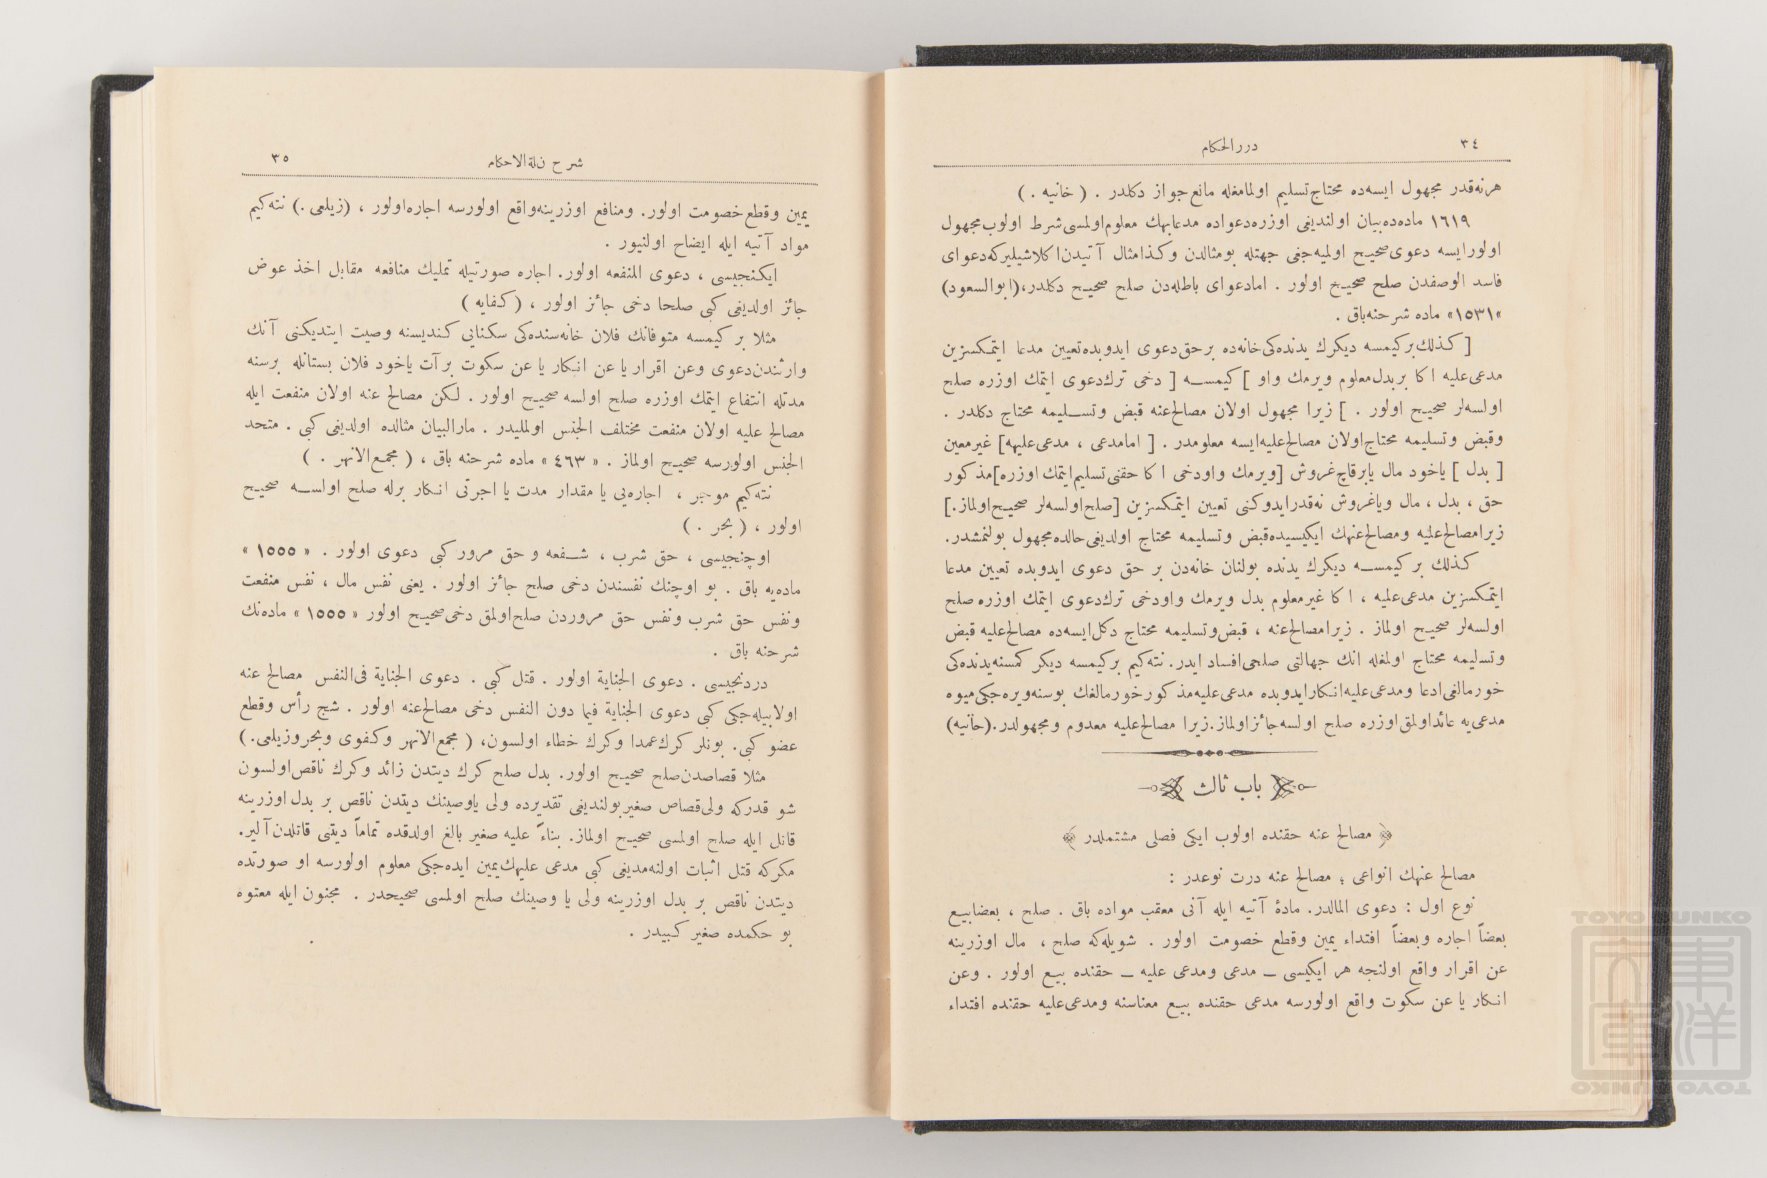 ٣٤
دررالحكام
هرنه‌قدر مجهول ايسه‌ده محتاج تسليم اولمامغله مانع جواز دكلدر . ( خانيه . )
١٦١٩ ماده‌ده بيان اولنديغى اوزره دعواده مدعابهك معلوم اولمسى شرط اولوب مجهول
اولورايسه دعوى صحيح اولميه‌جغى جهتله بومثالدن وكذا مثال آتيدن اكلاشيليركه دعواى
فاسد الوصفدن صلح صحيح اولور . امادعواى باطله‌دن صلح صحيح دكلدر،(ابوالسعود)
«١٥٣١» ماده شرحنه باق .
[ كذلك بركيمسه ديكرك يدنده‌كى خانه‌ده برحق دعوى ايدوبده تعيين مدعا ايتمكسزين
مدعى‌عليه اكا بربدل معلوم ويرمك واو ] كيمسه [ دخى ترك دعوى ايتمك اوزره صلح
اولسه‌لر صحيح اولور . ] زيرا مجهول اولان مصالح‌عنه قبض وتسليمه محتاج دكلدر .
وقبض وتسليمه محتاج اولان مصالح‌عليه ايسه معلومدر . [ امامدعى ، مدعى‌عليهه] غيرمعين
[ بدل ] ياخود مال يابرقاچ غروش [ويرمك واودخى اكا حقنى تسليم ايتمك اوزره] مذكور
حق ، بدل ، مال وياغروش نه‌قدرايدوكنى تعيين ايتمكسزين [صلح اولسه‌لر صحيح اولماز.]
زيرامصالح‌عليه ومصالح‌عنهك ايكيسيده قبض وتسليمه محتاج اولديغى حالده مجهول بولنمشدر.
كذلك بر كيمسه ديكرك يدنده بولنان خانه‌دن بر حق دعوى ايدوبده تعيين مدعا
ايتمكسزين مدعى‌عليه ، اكا غيرمعلوم بدل ويرمك واودخى ترك دعوى ايتمك اوزره صلح
اولسه‌لر صحيح اولماز . زيرامصالح‌عنه ، قبض وتسليمه محتاج دكل ايسه‌ده مصالح‌عليه قبض
وتسليمه محتاج اولمغله انك جهالتى صلحى افساد ايدر. نته‌كيم بركيمسه ديكر كمسنه يدنده‌كى
خورمالغى ادعا ومدعى‌عليه انكارايدوبده مدعى‌عليه مذكورخورمالغك بوسنه ويره‌جكى ميوه
مدعى‌يه عائداولمق اوزره صلح اولسه جائزاولماز.زيرا مصالح‌عليه معدوم ومجهولدر.(خانيه)
باب ثالث
مصالح عنه حقنده اولوب ايكى فصلى مشتملدر
مصالح عنهك انواعى ؛ مصالح عنه درت نوعدر :
نوع اول : دعوى المالدر. مادهٔ آتيه ايله آنى معقب مواده باق . صلح ، بعضابيع
بعضاً اجاره وبعضاً افتداء يمين وقطع خصومت اولور . شويله‌كه صلح ، مال اوزرينه
عن اقرار واقع اولنجه هر ايكيسى ــ مدعى ومدعى عليه ــ حقنده بيع اولور . وعن
انكار يا عن سكوت واقع اولورسه مدعى حقنده بيع معناسنه ومدعى‌عليه حقنده افتداء
شرح ادلةالاحكام
٣٥
يمين وقطع خصومت اولور. ومنافع اوزرينه واقع اولورسه اجاره اولور ، (زيلعى.) نته‌كيم
مواد آتيه ايله ايضاح اولنيور .
ايكنجيسى ، دعوى المنفعه اولور. اجاره صورتيله تمليك منافعه مقابل اخذ عوض
جائز اولديغى كبى صلحا دخى جائز اولور ، ( كفايه )
مثلا بر كيمسه متوفانك فلان خانه‌سنده‌كى سكنايى كنديسنه وصيت ايتديكنى آنك
وارثندن دعوى وعن اقرار يا عن انكار يا عن سكوت بر آت ياخود فلان بستانله برسنه
مدتله انتفاع ايتمك اوزره صلح اولسه صحيح اولور . لكن مصالح عنه اولان منفعت ايله
مصالح عليه اولان منفعت مختلف الجنس اولمليدر . مارالبيان مثالده اولديغى كبى . متحد
الجنس اولورسه صحيح اولماز . « ٤٦٣ » ماده شرحنه باق ، ( مجمع‌الانهر . )
نته‌كيم موجر ، اجاره‌يى يا مقدار مدت يا اجرتى انكار برله صلح اولسه صحيح
اولور ، ( بحر . )
اوچنجيسى ، حق شرب ، شفعه و حق مرور كبى دعوى اولور . « ١٥٥٥ »
ماده‌يه باق . بو اوچنك نفسندن دخى صلح جائز اولور . يعنى نفس مال ، نفس منفعت
ونفس حق شرب ونفس حق مروردن صلح اولمق دخى صحيح اولور « ١٥٥٥ » ماده‌نك
شرحنه باق .
دردنجيسى . دعوى الجناية اولور . قتل كبى . دعوى الجناية فى‌النفس مصالح عنه
اولابيله‌جكى كبى دعوى الجناية فيما دون النفس دخى مصالح‌عنه اولور . شج رأس وقطع
عضو كبى. بونلر كرك عمدا وكرك خطاء اولسون، ( مجمع‌الانهر وكفوى وبحروزيلعى.)
مثلا قصاصدن صلح صحيح اولور. بدل صلح كرك ديتدن زائد وكرك ناقص اولسون
شو قدركه ولى‌قصاص صغير بولنديغى تقديرده ولى ياوصينك ديتدن ناقص بر بدل اوزرينه
قاتل ايله صلح اولمسى صحيح اولماز. بناءً عليه صغير بالغ اولدقده تماماً ديتى قاتلدن آلير.
مكركه قتل اثبات اولنه‌مديغى كبى مدعى عليهك يمين ايده‌جكى معلوم اولورسه او صورتده
ديتدن ناقص بر بدل اوزرينه ولى يا وصينك صلح اولمسى صحيحدر . مجنون ايله معتوه
بو حكمده صغير كبيدر .
TOYO BUNKO
東洋文庫
TOYO BUNKO